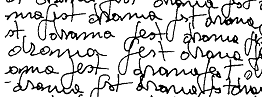 ma fest drama fest drama
st drama fest drama f
drama fest drama f
ama fest drama fest d
drama fest drama fest drama